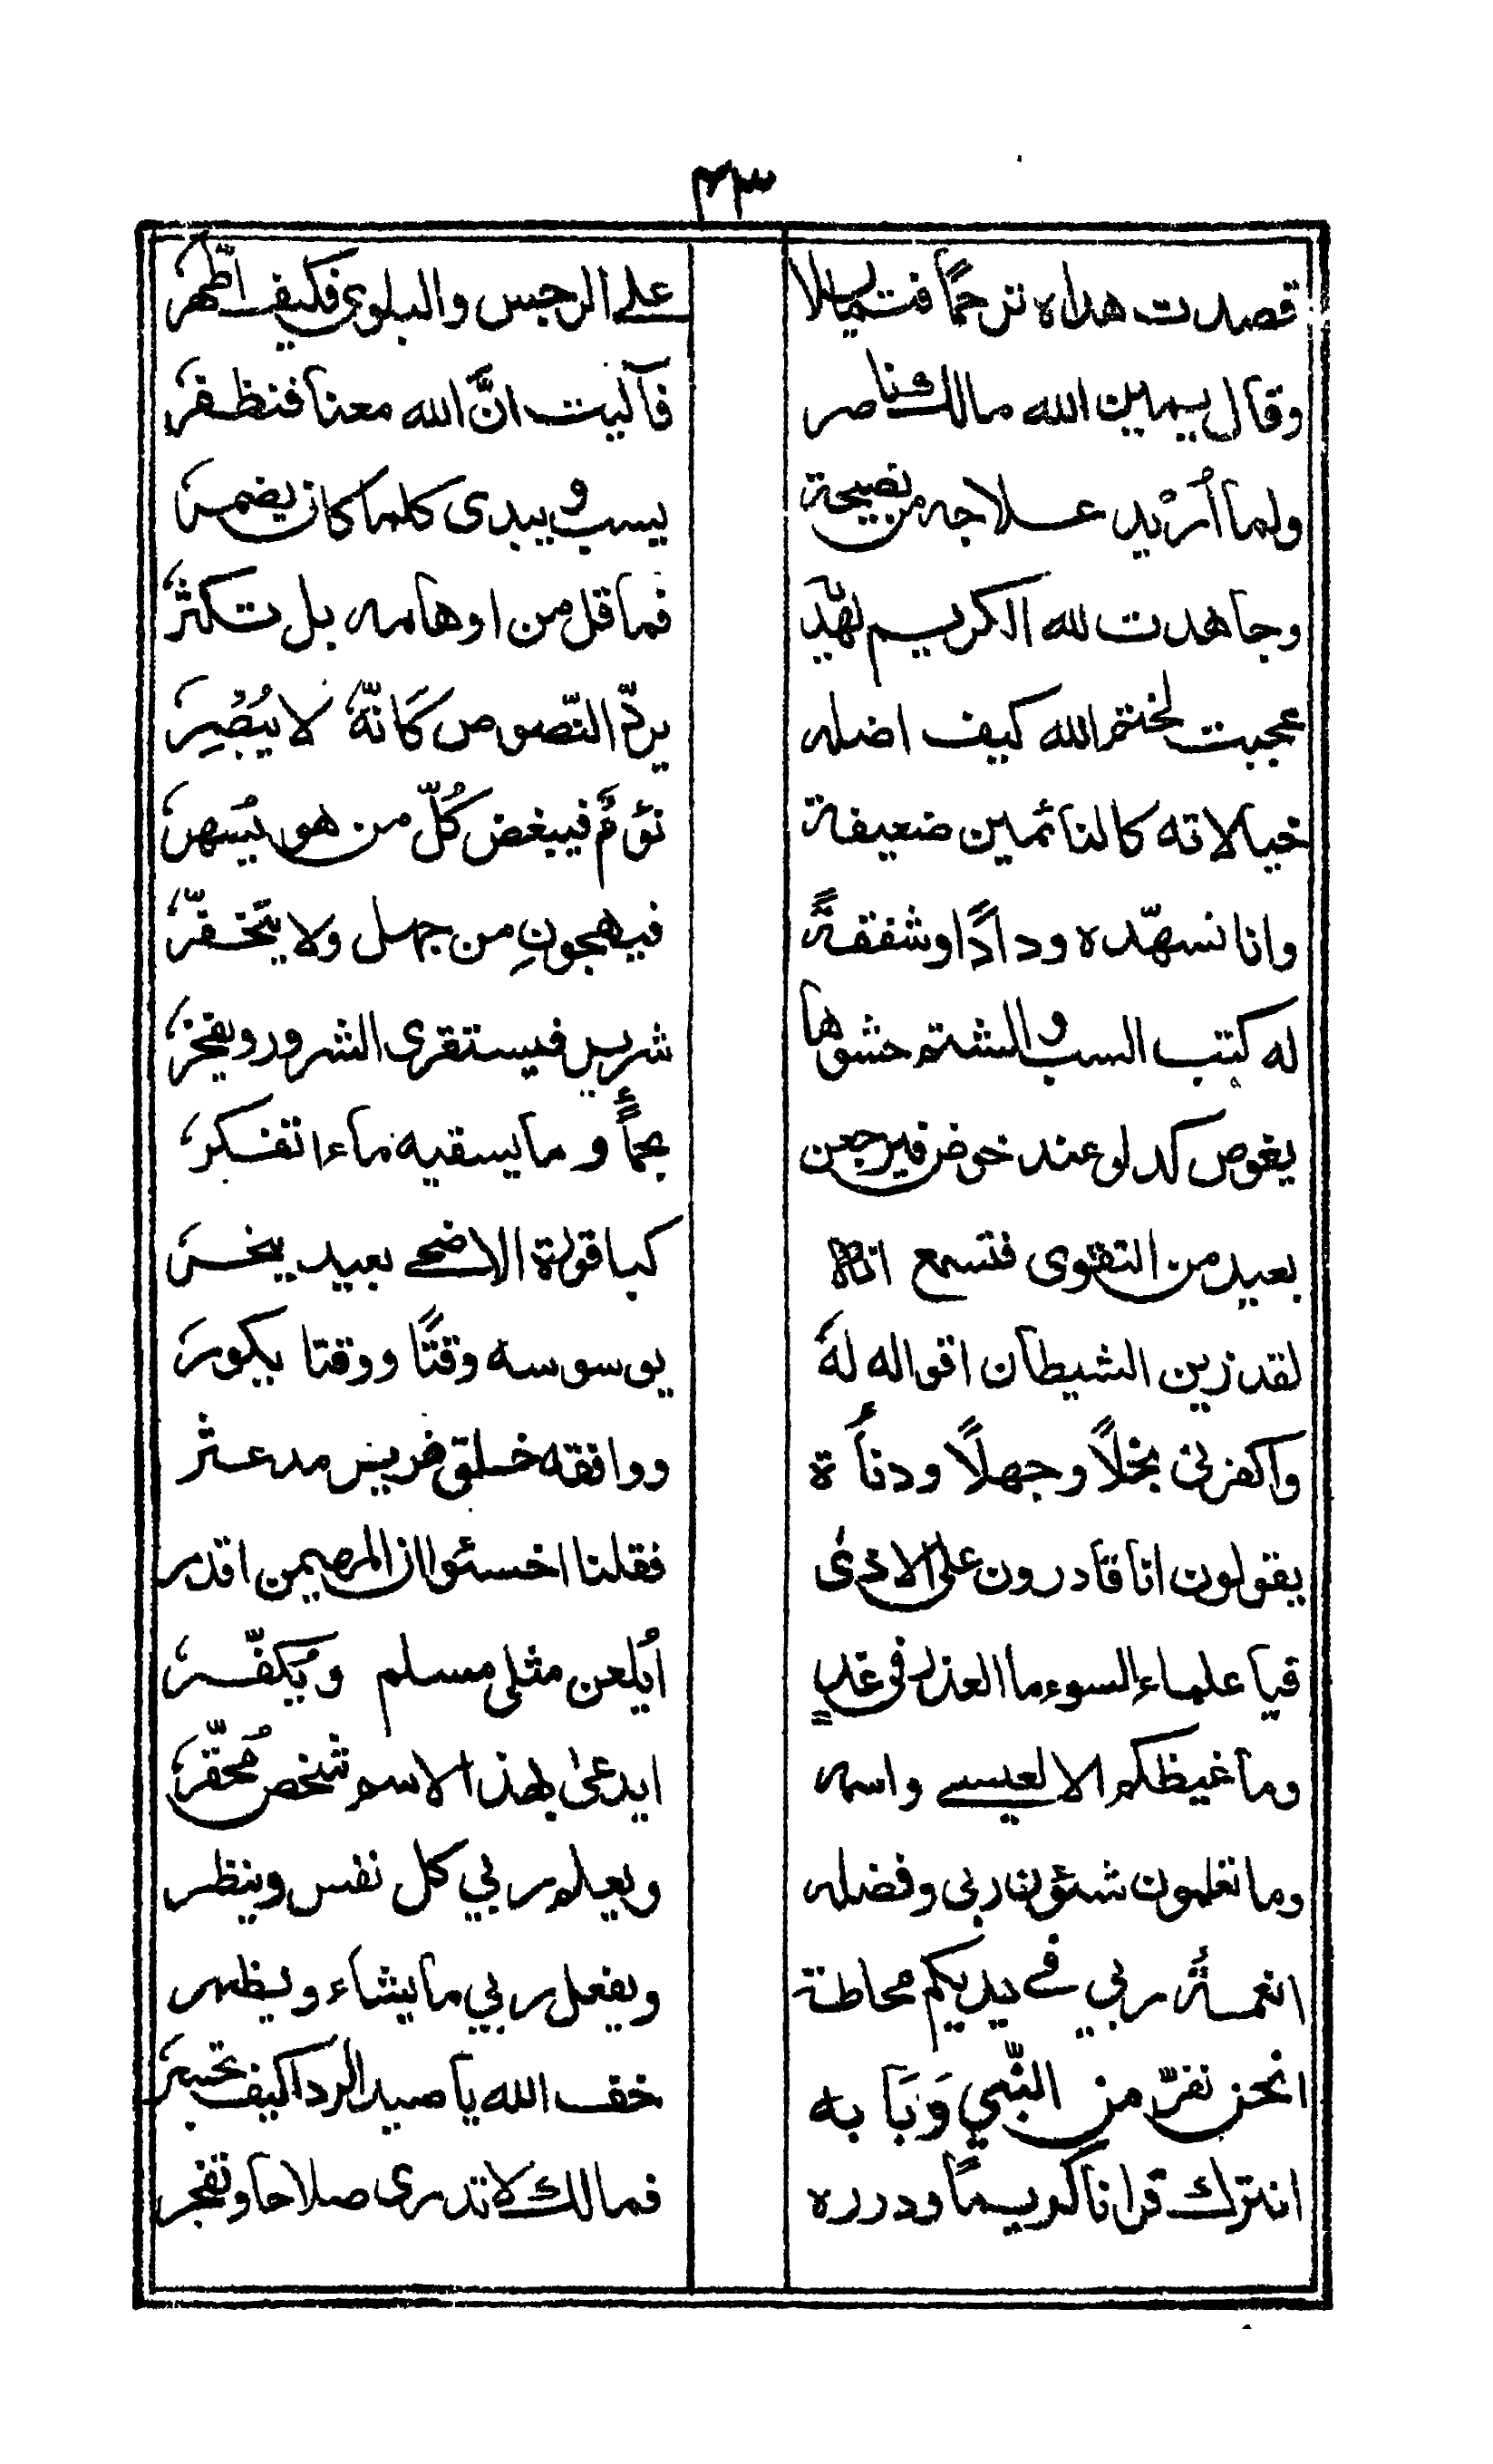 ٤٣
قصدت هداه ترحمًا فتمايلا على الرجس والبلوى فكيف اطّهرُ
وقال يمين الله مالك ناصر فآليت انَّ الله معنا فنظفرُ
ولما أُرْيد علاجه من نصيحة يسب ويبدى كلما كان يضمرُ
وجاهدت لله الكريم لهديه فما قل من اوهامه بل تكثّرُ
عجبت لختم الله كيف اضله يردّ النّصوص كَانّهُ لا يُبْصِرُ
خيالاته كالنائمين ضعيفة نؤمٌ فيبغض كُلّ من هو يُسهرُ
وانا نسهّده ودادًا وشفقةً فيهجونِ من جهل ولا يتخفّرُ
له كتب السب والشتم حشوها شرير فيستقرى الشرور ويفخرُ
يغوص كدلو عند خوض فيرجعن بحمأٍ وما يسقيه ماء اتفكرُ
بعيد من التقوى فتسمع انه كباقورة الاضحى بعيد ينحرُ
لقد زين الشيطان اقواله لهُ يوسوسه وقتًا ووقتا يكورُ
واكفرنى بخلًا وجهلًا ودنأَة ووافقه خلق ضرير مدعثر
يقولون انا قادرون على الاذى فقلنا اخسئوا ان المهيمن اقدر
فيا علماء السوء ما العذر فى غدٍ اُيلعن مثلى مسلم ويُكفّرُ
وما غيظكم الا لعيسى واسمه ايدعى بهذ الاسم شخص مُحقّرُ
وما تعلمون شئون ربى وفضله ويعلم ربي كل نفس وينظر
انعمةُ ربي في يديكم محاطة ويفعل ربي ما يشاء ويظهر
انحن نفرّ من النّبي وَبَابه خف الله يا صيد الردا كيف تجسرُ
انترك قرانا كريمًا ودرره فمالك لا تدرى صلاحا وتفجر